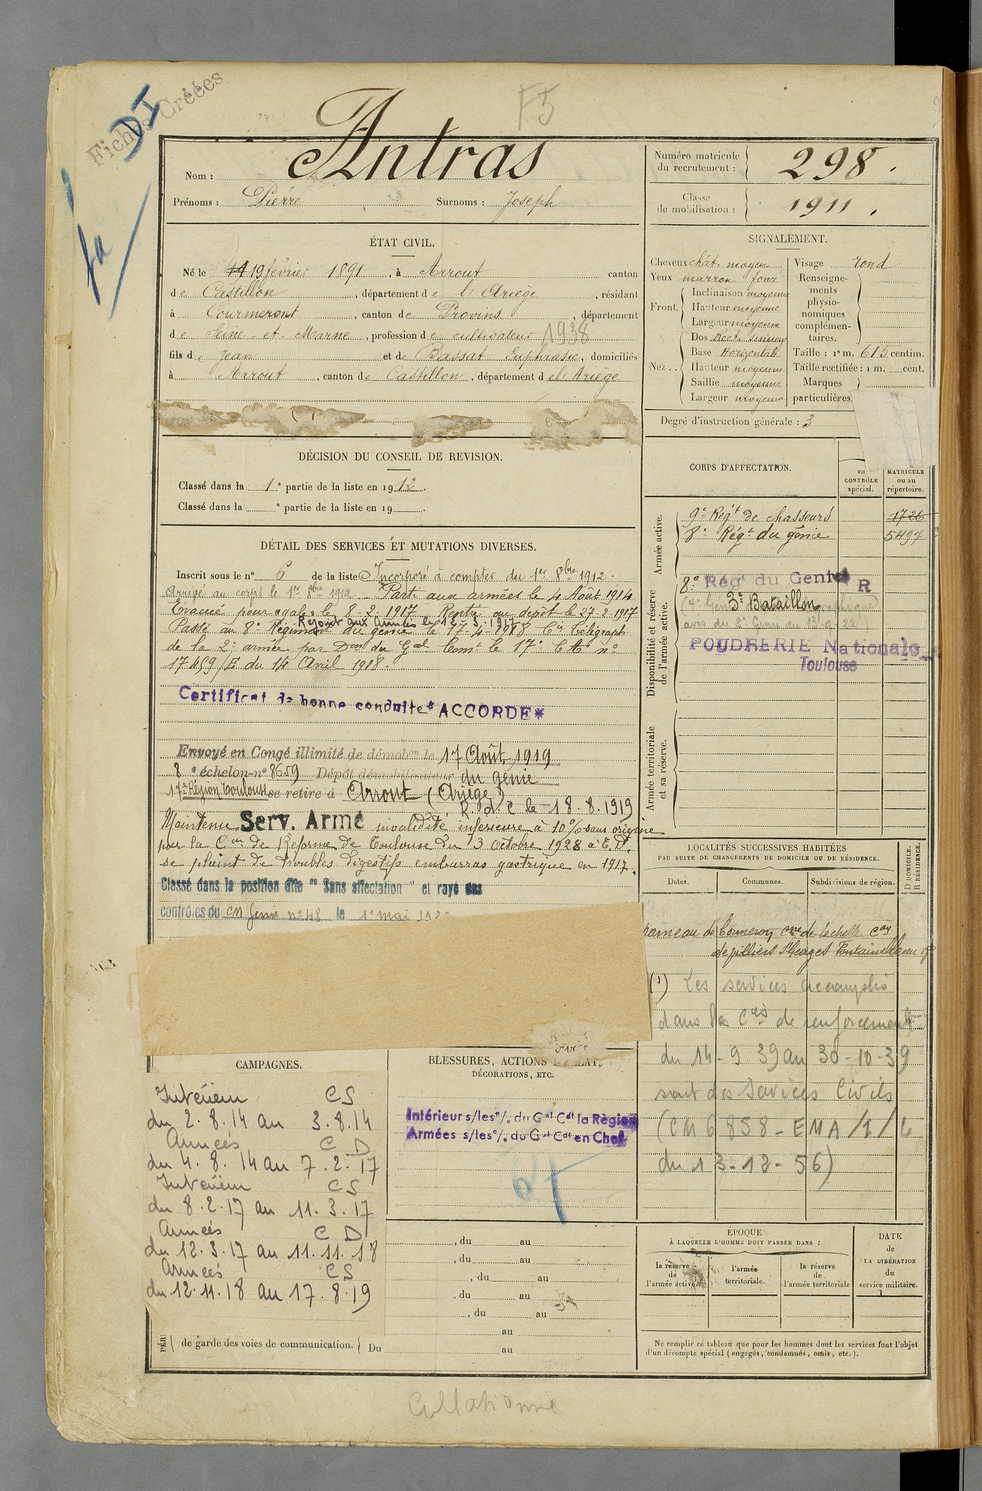 Fiches Créées
DI
F5
Nom : Antras
Prénoms : Pierre Surnoms : Joseph
Numéro matricule du recrutement : 298.
Classe de mobilisation : 1911.
ÉTAT CIVIL.
Né le 19 février 1891, à Arrout canton
de Castillon, département de l'Ariège, résidant
à Courmeront, canton de Provins, département
de Seine et Marne, profession de cultivateur 1938
fils de Jean et de Bassat Euphrasie, domiciliés
à Arrout, canton de Castillon, département de l'Ariège
SIGNALEMENT.
Cheveux chât. moyen
Yeux marron foncé
Front. Inclinaison moyenne
Hauteur moyenne
Largeur moyenne
Nez.. Dos Rect. sinueux
Base Horizontale
Hauteur moyenne
Saillie moyenne
Largeur moyenne
Visage rond
Renseignements physionomiques complémentaires.
Taille : 1m. 615 centim.
Taille rectifiée : 1 m. cent.
Marques particulières.
Degré d'instruction générale : 3
DÉCISION DU CONSEIL DE REVISION.
Classé dans la 1e partie de la liste en 1912.
Classé dans la e partie de la liste en 19 .
DÉTAIL DES SERVICES ET MUTATIONS DIVERSES.
Inscrit sous le n° 6 de la liste Incorporé à compter du 1er 8bre 1912.
Arrivé au corps le 1er 8bre 1912. Parti aux armées le 4 Août 1914
Evacué pour gale le 8-2-1917 Rentré au dépôt le 27-2-1917
Rejoint aux Armées le 12-3-1917
Passé au 8e Régiment du génie le 17-4-1918 Cie Télégraph
de la 2e armée par Don du Gal Comt le 17e CA n°
17459/A du 14 Avril 1918.
Certificat de bonne conduite *ACCORDE*
Envoyé en Congé illimité de démobon le 17 Août 1919
8e échelon n° 8659 Dépôt démobilisateur du génie
17e Région Toulouse se retire à Arrout (Ariège)
R. d. C le 18.8.1919
Maintenu Serv. Armé invalidité inférieure à 10% sans origine
par la Con de Réforme de Toulouse du 3 octobre 1928 à E.D.
se plaint de troubles digestifs embarras gastrique en 1917.
Classé dans la position dite "Sans affectation" et rayé des
contrôles du CM Génie n° 48 le 1er mai 192
CORPS D'AFFECTATION.
au CONTRÔLE spécial.
MATRICULE ou au répertoire.
Armée active.
9e Regt de chasseurs 1726
8e Régt du génie 5497
Disponibilité et réserve de l'armée active.
8e Rég du Génie R
3e Bataillon
avis du 8e Génie du 13-9-22
POUDRERIE Nationale
Toulouse
Armée territoriale et sa réserve.
LOCALITÉS SUCCESSIVES HABITÉES
PAR SUITE DE CHANGEMENTS DE DOMICILE OU DE RÉSIDENCE.
Dates. Communes. Subdivisions de région.
D DOMICILE.
R RÉSIDENCE.
hameau de Cormeron Cne de Léchelle Con
de Villiers St Georges Fontainebleau
(1) Les services accomplis
dans les Cies de renforcement
du 14-9-39 au 30-10-39
sont des Services Civils
(CM 6858-EMA/1/L
du 13-12-56)
CAMPAGNES.
Intérieur CS
du 2.8.14 au 3.8.14
Armées C D
du 4.8.14 au 7.2.17
Intérieur CS
du 8.2.17 au 11.3.17
Armées C D
du 12.3.17 au 11.11.18
Armées CS
du 12.11.18 au 17.8.19
BLESSURES, ACTIONS D'ÉCLAT,
DÉCORATIONS, ETC.
Intérieur s/les o/. du Gal Cdt la Région
Armées s/les o/. du Gal Cdt en Chef
, du au
, du au
, du au
, du au
, du au
au
de garde des voies de communication. Du au
ÉPOQUE
À LAQUELLE L'HOMME DOIT PASSER DANS :
la réserve de l'armée active
l'armée territoriale.
la réserve de l'armée territoriale
DATE
DE LA LIBÉRATION
du
service militaire.
Ne remplir ce tableau que pour les hommes dont les services font l'objet
d'un décompte spécial (engagés, condamnés, omis, etc.).
Collationné